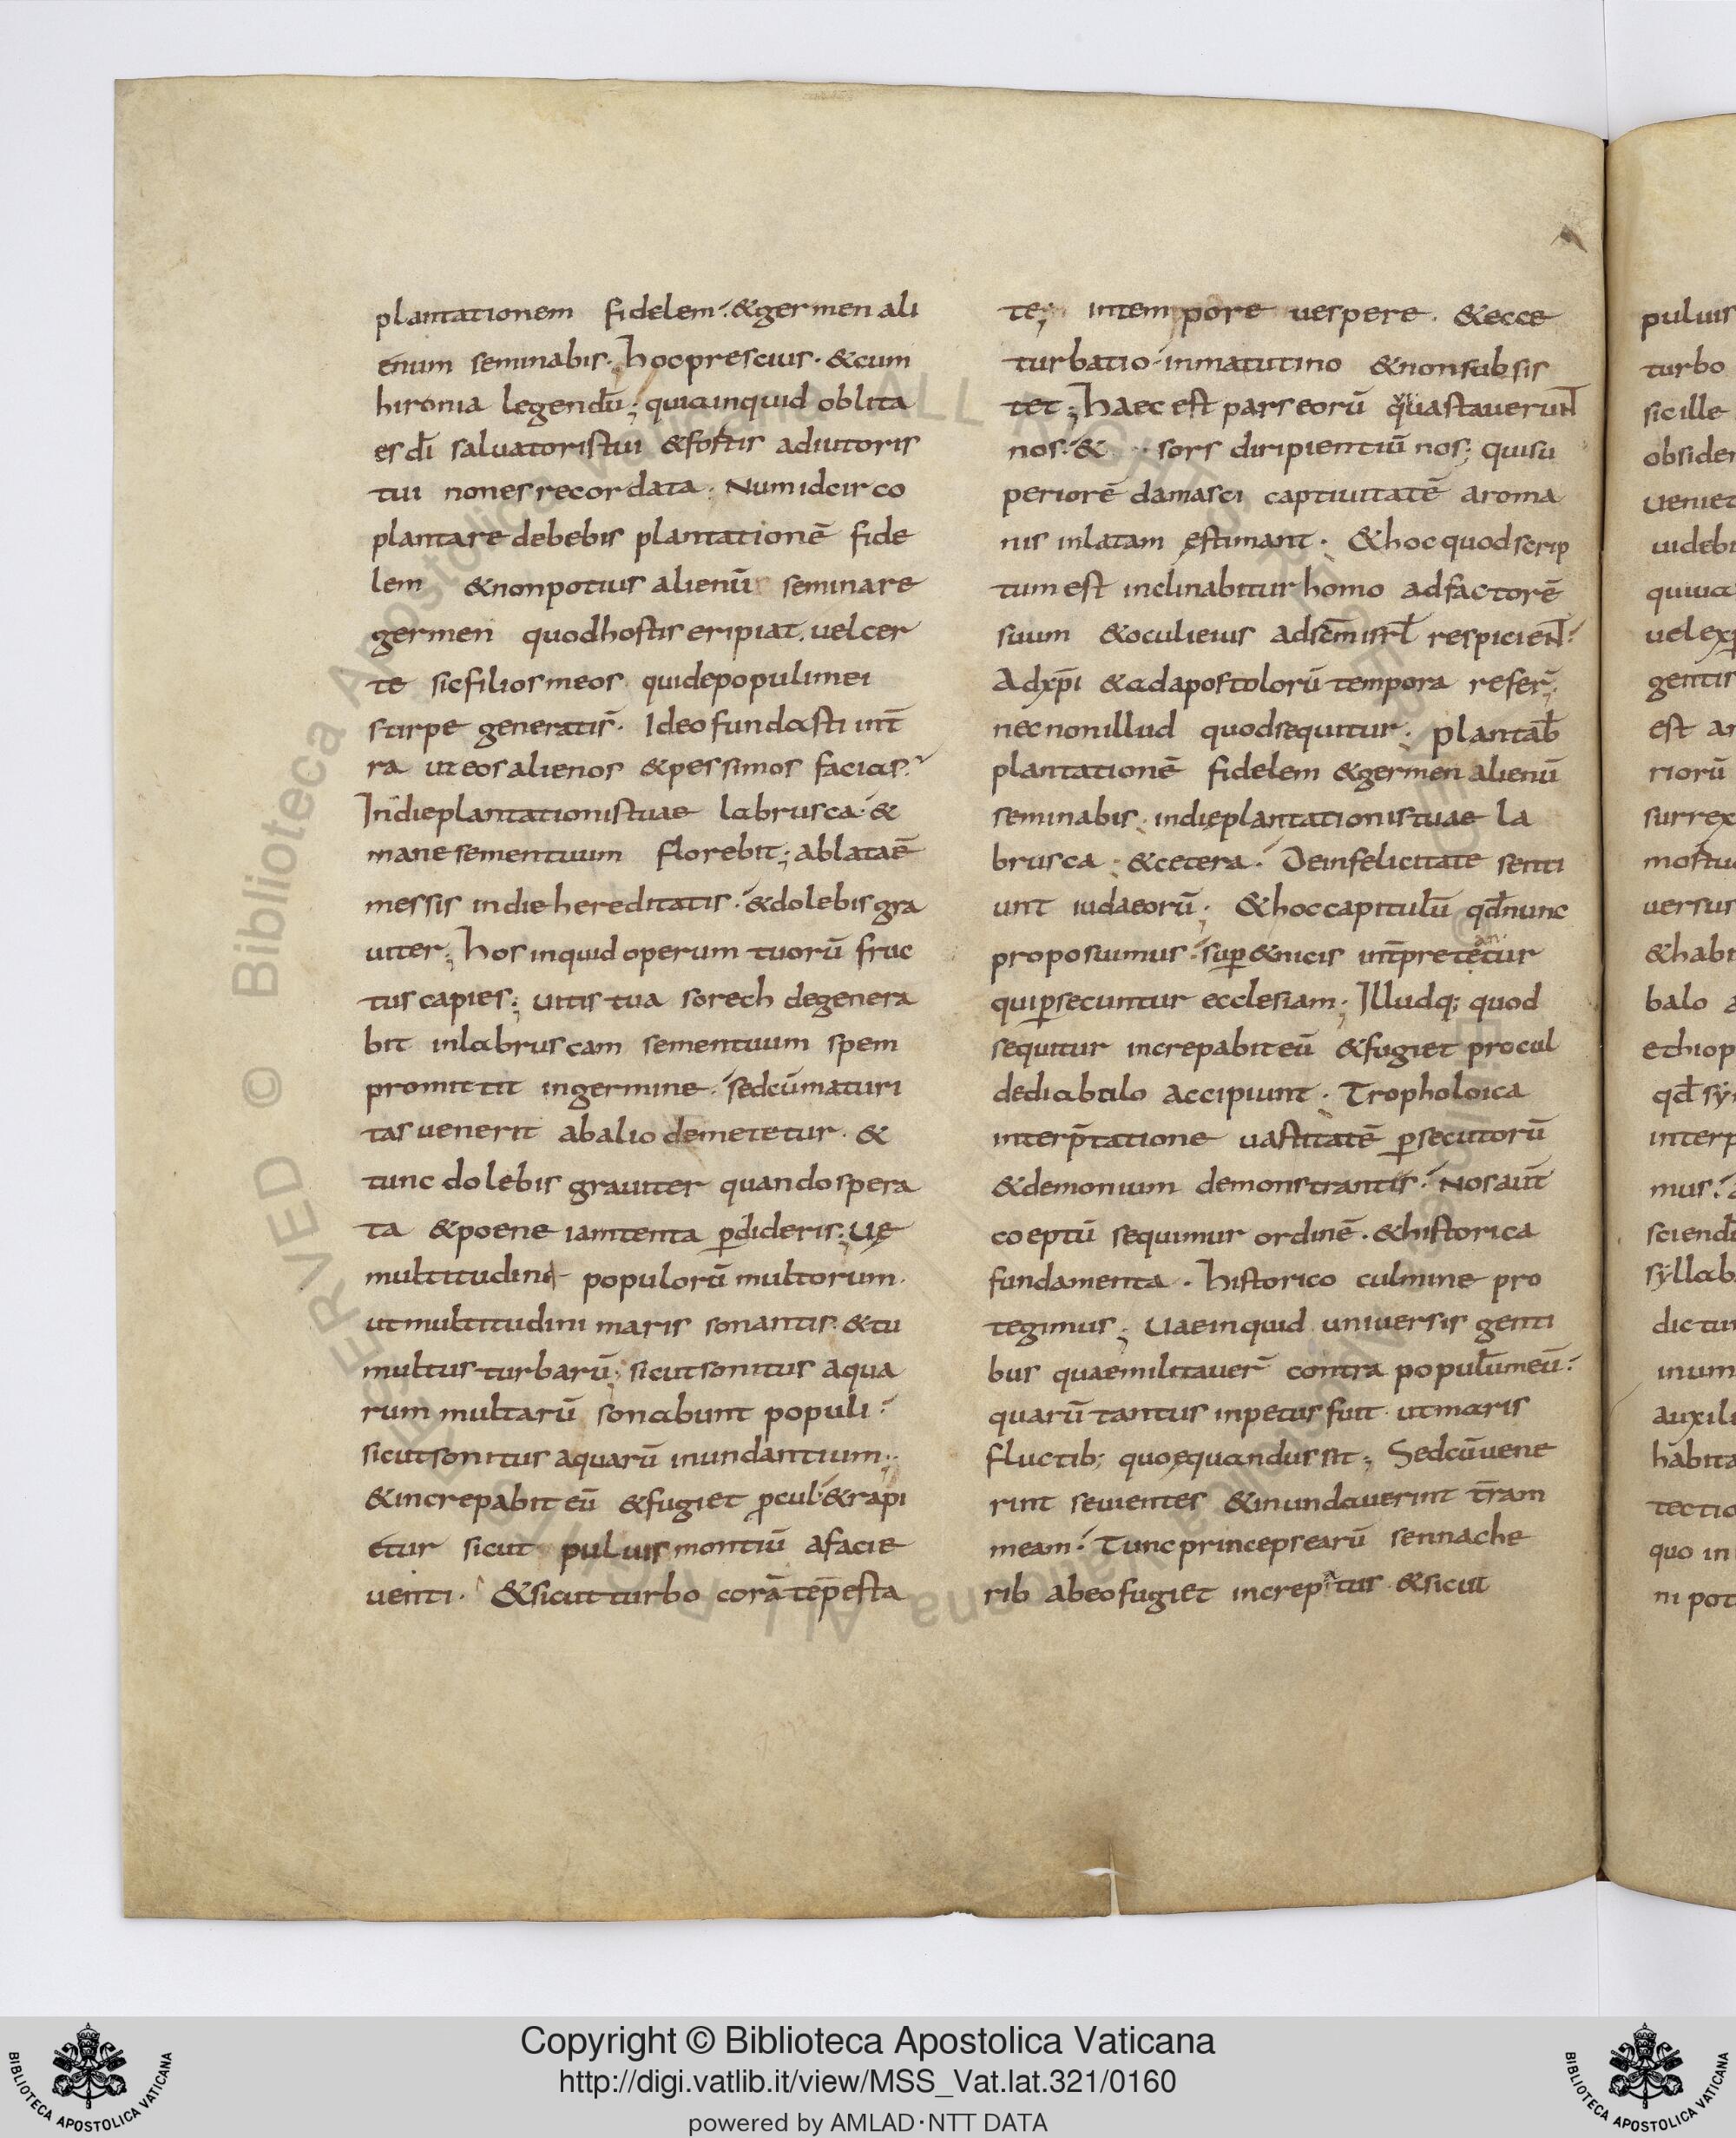 plantationem fidelem. &germen ali
enum seminabis. hocprescius. &cum
hironia legendū; quiainquid oblita
es dī saluatoristui &fortis adiutoris
tui nonesrecordata. Numidcirco
plantaredebebis plantationē fide
lem &nonpotius alienū seminare
germen quodhostis eripiat. uelcer
te sicfiliosmeos quidepopulimei
stirpe generatis. Ideofundasti int̄
ra uteosalienos &pessimos facias.
Indieplantationistuae labrusca. &
manesementuum florebit; ablataē
messis indiehereditatis. &dolebisgra
uiter; hosinquid operum tuorū fruc
tuscapies; uitistua sorech degenera
bit inlabruscam sementuum spem
promittit ingermine. sedcūmaturi
tasuenerit abalio demetetur. &
tunc dolebis grauiter quandospera
ta &poene iamtenta pdideris; ue
multitudini populorū multorum.
utmultitudini maris sonantis. &tu
multusturbarū; sicutsonitus aqua
rum multarū sonabunt populi.
sicutsonitus aquarū inundantium;
&increpabit eū &fugiet pcul. &rapi
etur sicut puluis montiū afacie
uenti. &sicutturbo corā tēpesta
te; intempore uespere. &ecce
turbatio. inmatutino &nonsubsis
tet; haecest parseorū q uastauerunt̄
nos. & sors diripientiū nos; quisu
periorē damasci captiuitatē aroma
nis inlatam estimant. &hocquodscrip
tumest inclinabiturhomo adfactorē
suum &oculieius adsc̄misrł respicien̄.
Adxp̄i &adapostolorū tempora refer̄;
necnonillud quodsequitur. plantab̄
plantationē fidelem &germen alienū
seminabis. indieplantationistuae la
brusca. &cetera. Deinfelicitate senti
unt iudaeorū; &hoccapitulū qd̄nunc
proposuimus. sup&nicis int̄pretetur
an
quipsecuntur ecclesiam; Illudq; quod
sequitur increpabiteū &fugiet procul
dediabulo accipiunt. Tropholoica
interp̄tatione uastitatē psecutorū
&demonium demonstrantis. Nosaut̄
coeptū sequimur ordinē. &historica
fundamenta. historico culmine pro
tegimus; Uaeinquid uniuersis genti
bus quaemilitauer̄ contra populūmeū.
quarū tantus inpetusfuit. utmaris
fluctib; quoequandussit; Sedcūuene
rint seuientes &inundauerint t̄ram
meam. Tuncprincepsearū sennache
rib abeofugiet increpatus &sicut
puluis
turbo
sicille
obsider
ueniet
uidebi
quiua
uelexp
gentis
est ar
riorū
surrex
mostu
uersus
&habi
balo a
ethiop
qd̄ sy
interp
mus.
sciend
syllab
dictu
inum
auxili
habita
tectio
quo in
ni pot
Copyright © Biblioteca Apostolica Vaticana
http://digi.vatlib.it/view/MSS_Vat.lat.321/0160
powered by AMLAD·NTT DATA
BIBLIOTECA APOSTOLICA VATICANA
BIBLIOTECA APOSTOLICA VATICANA
© Biblioteca Apostolica Vaticana ALL RIGHTS RESERVED